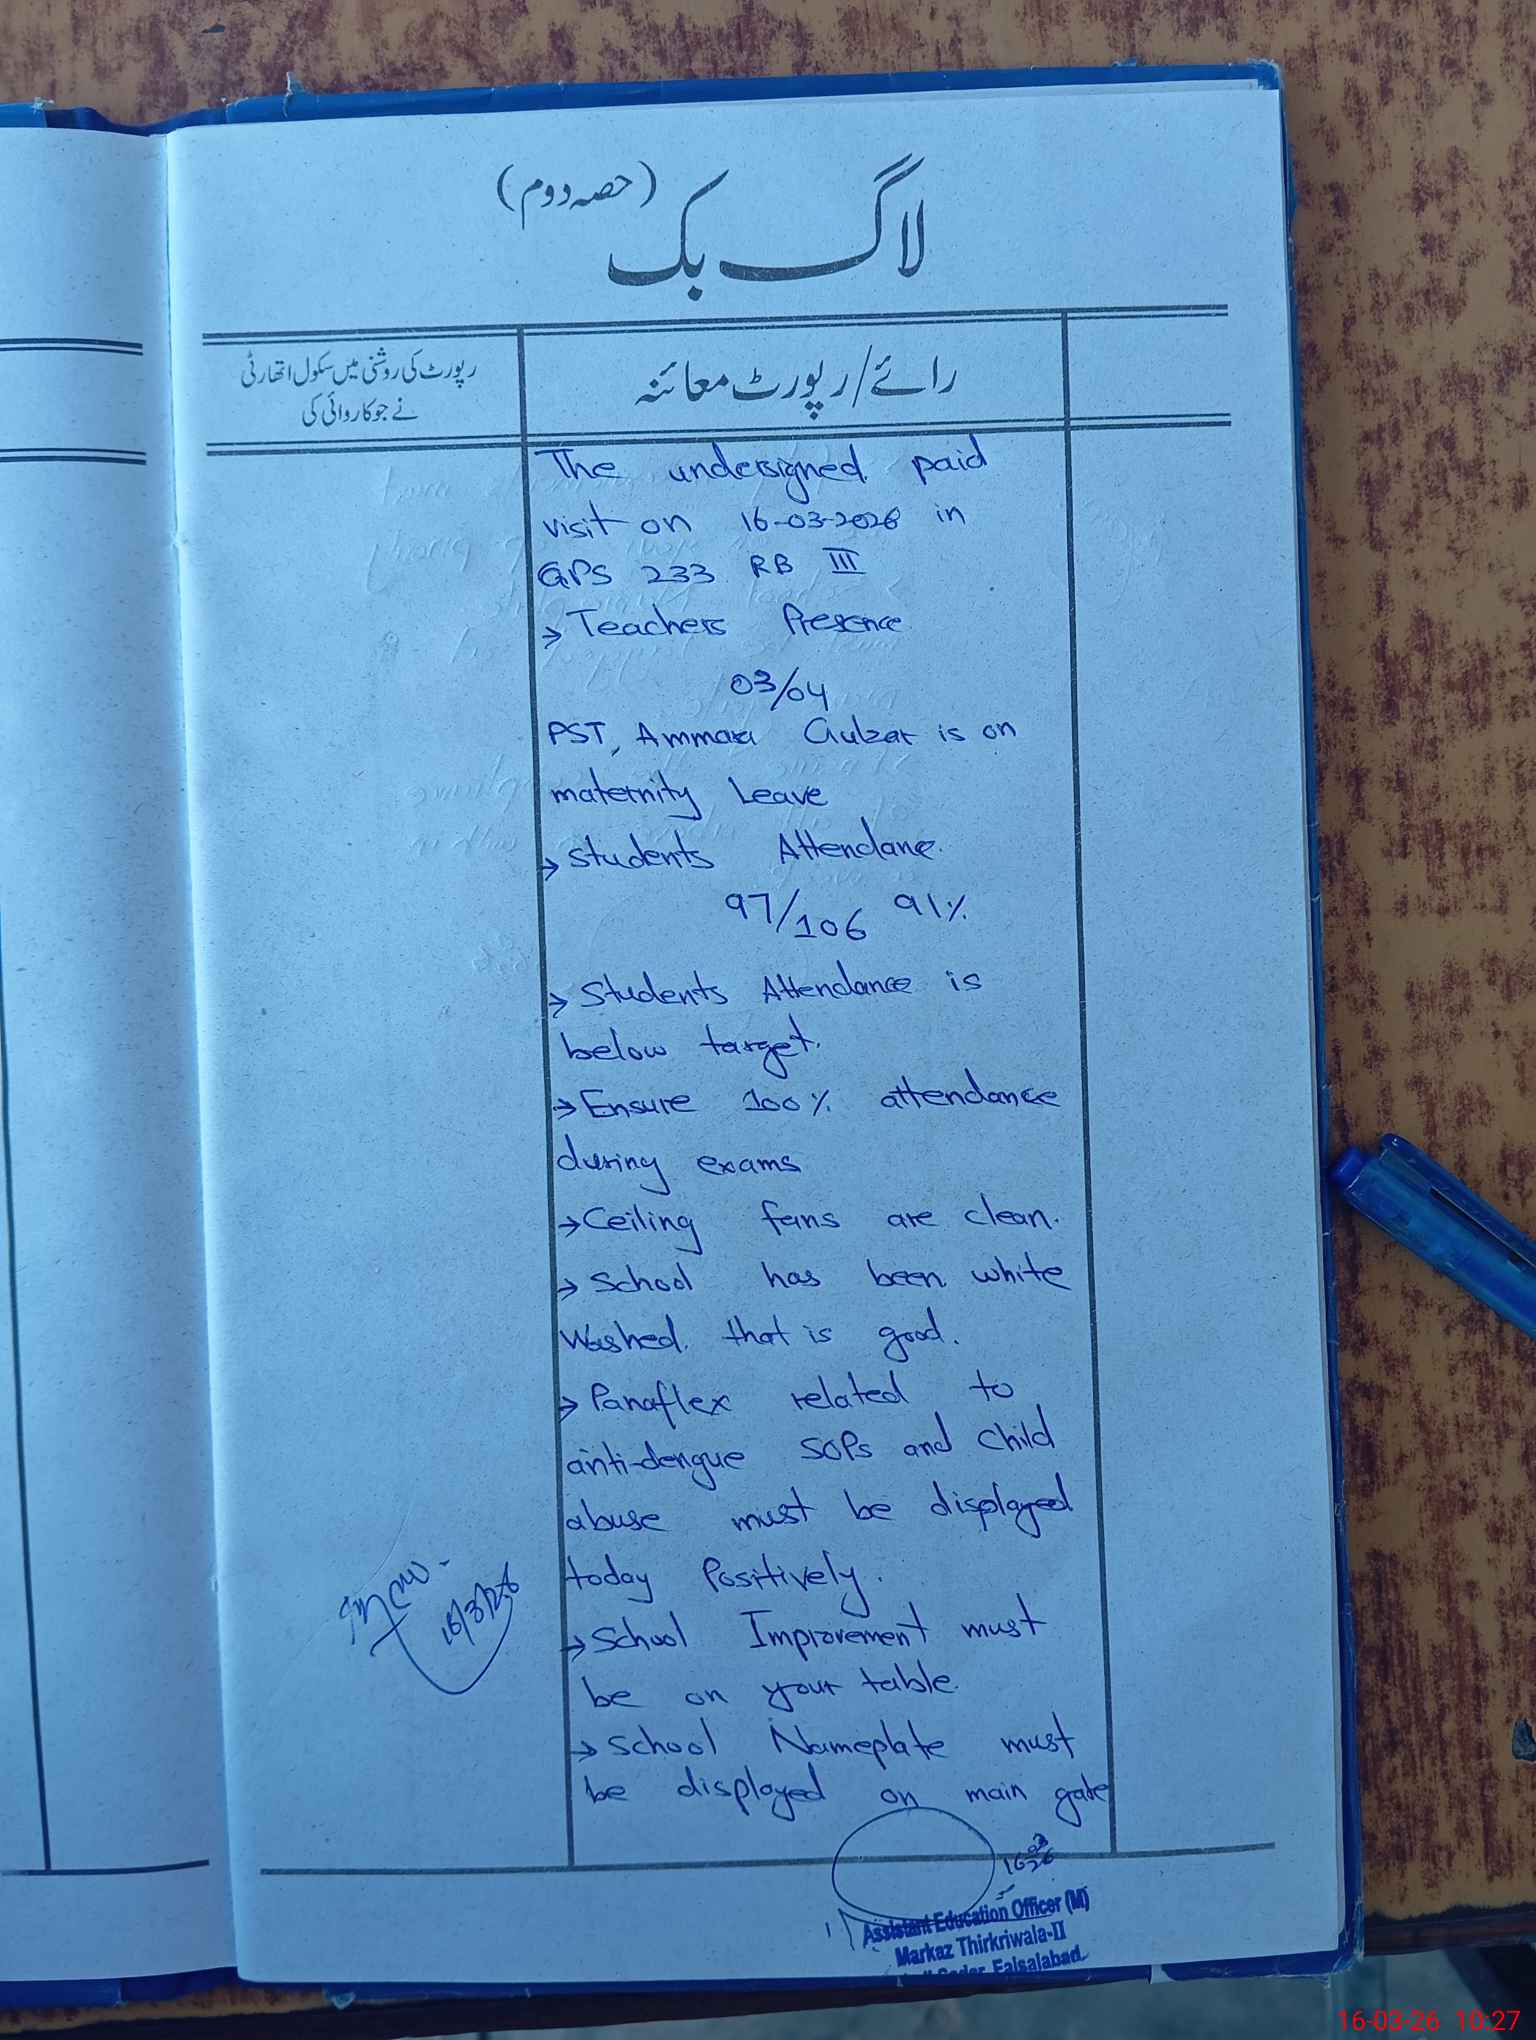 لاگ بک (حصہ دوم)
رائے/رپورٹ معائنہ
رپورٹ کی روشنی میں سکول اتھارٹی
نے جو کاروائی کی
The undersigned paid
visit on 16-03-2026 in
GPS 233 RB III
→ Teachers Presence
03/04
PST, Ammara Gulzar is on
maternity Leave
→ Students Attendane.
97/106 91%
→ Students Attendance is
below target.
→ Ensure 100% attendance
during exams
→ Ceiling fans are clean.
→ School has been white
washed. that is good.
→ Panaflex related to
anti-dengue SOPs and child
abuse must be displayed
today Positively.
→ School Improvement must
be on your table.
→ School Nameplate must
be displayed on main gate
16/3/26
16 03 26
Assistant Education Officer (M)
Markaz Thirkriwala-II
Sadar, Faisalabad.
16-03-26 10:27